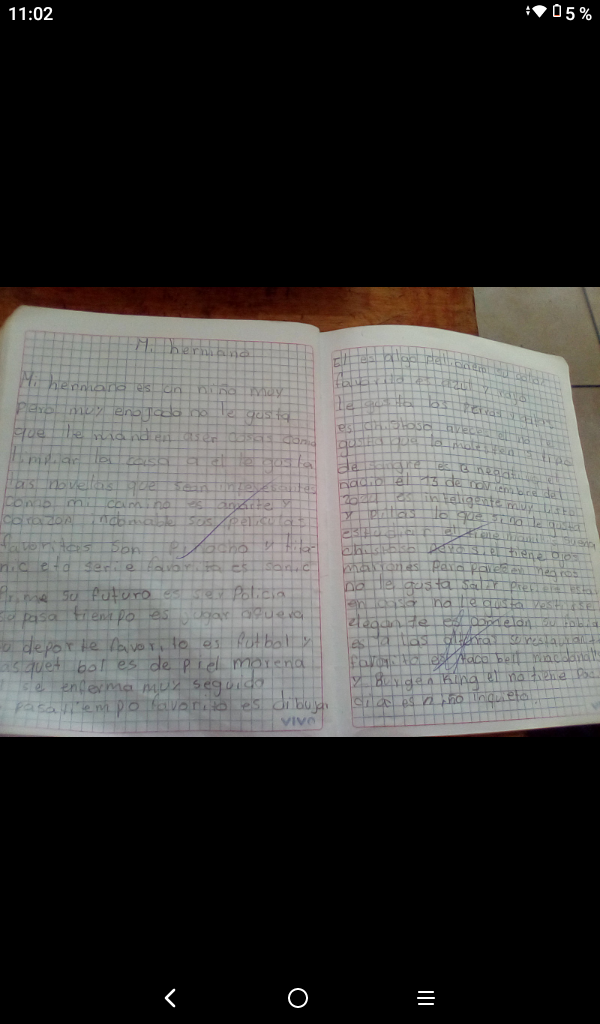 11:02
5 %
Mi hermano
Mi hermano es un niño muy
pero muy enojado no le gusta
que le manden aser cosas como
limpiar la casa a el le gusta
las novelas que sean interesantes
como mi camino es amarte y
corazon indomable sus peliculas
favoritas son el ocho y tita
nic eta serie favorita es sonic
Prime su futuro es ser Policia
su pasa tiempo es jugar afuera
su deporte favorito es futbol y
basquet bol es de piel morena
se enferma muy seguido
pasatiempo favorito es dibujar
vivo
El es algo
favorito es azul y rojo
Le gusta las
es chistoso aveces el no le
gusta que lo molesten s tipo
de sangre es B negativo el
nacio el 13 de noviembre del
es inteligente muy listo
y pillas lo que si no le gusta
estudiar el tiene
chistoso el tiene ojos
marrones para parecen negros
no le gusta salir prefiere estar
en casa no le gusta vestirse
elegante es comelon su fobia
es a las
favorito es taco bell macdonalls
y Burgen King el no tiene pa
es niño inqueto